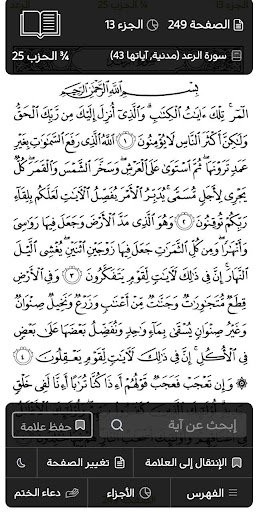 الصفحة 249
الجزء 13
سورة الرعد (مدنية, آياتها 43)
¾ الحزب 25
بِسْمِ اللَّهِ الرَّحْمَٰنِ الرَّحِيمِ
الٓمٓر ۚ تِلْكَ ءَايَٰتُ ٱلْكِتَٰبِ ۗ وَٱلَّذِىٓ أُنزِلَ إِلَيْكَ مِن رَّبِّكَ ٱلْحَقُّ
وَلَٰكِنَّ أَكْثَرَ ٱلنَّاسِ لَا يُؤْمِنُونَ ١ ٱللَّهُ ٱلَّذِى رَفَعَ ٱلسَّمَٰوَٰتِ بِغَيْرِ
عَمَدٍ تَرَوْنَهَا ۖ ثُمَّ ٱسْتَوَىٰ عَلَى ٱلْعَرْشِ ۖ وَسَخَّرَ ٱلشَّمْسَ وَٱلْقَمَرَ ۖ كُلٌّ
يَجْرِى لِأَجَلٍ مُّسَمًّى ۚ يُدَبِّرُ ٱلْأَمْرَ يُفَصِّلُ ٱلْءَايَٰتِ لَعَلَّكُم بِلِقَآءِ
رَبِّكُمْ تُوقِنُونَ ٢ وَهُوَ ٱلَّذِى مَدَّ ٱلْأَرْضَ وَجَعَلَ فِيهَا رَوَٰسِىَ
وَأَنْهَٰرًا ۖ وَمِن كُلِّ ٱلثَّمَرَٰتِ جَعَلَ فِيهَا زَوْجَيْنِ ٱثْنَيْنِ ۖ يُغْشِى ٱلَّيْلَ
ٱلنَّهَارَ ۚ إِنَّ فِى ذَٰلِكَ لَءَايَٰتٍ لِّقَوْمٍ يَتَفَكَّرُونَ ٣ وَفِى ٱلْأَرْضِ
قِطَعٌ مُّتَجَٰوِرَٰتٌ وَجَنَّٰتٌ مِّنْ أَعْنَٰبٍ وَزَرْعٌ وَنَخِيلٌ صِنْوَانٌ
وَغَيْرُ صِنْوَانٍ يُسْقَىٰ بِمَآءٍ وَٰحِدٍ وَنُفَضِّلُ بَعْضَهَا عَلَىٰ بَعْضٍ
فِى ٱلْأُكُلِ ۚ إِنَّ فِى ذَٰلِكَ لَءَايَٰتٍ لِّقَوْمٍ يَعْقِلُونَ ٤
وَإِن تَعْجَبْ فَعَجَبٌ قَوْلُهُمْ أَءِذَا كُنَّا تُرَٰبًا أَءِنَّا لَفِى خَلْقٍ
إبحث عن آية
حفظ علامة
الإنتقال إلى العلامة
تغيير الصفحة
الفهرس
الأجزاء
دعاء الختم